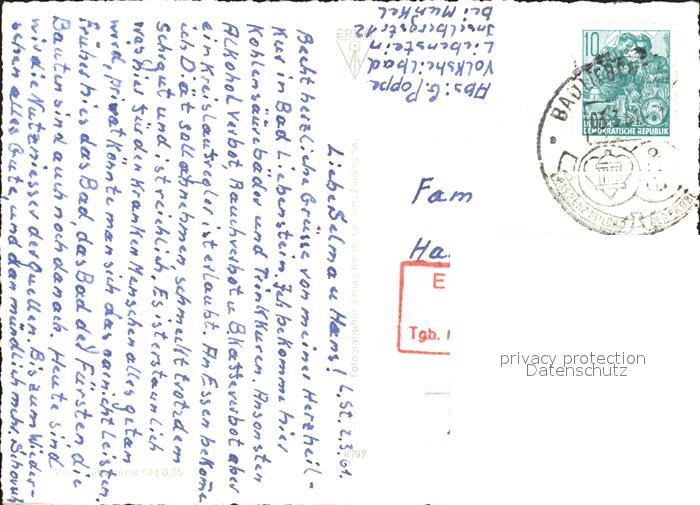 Liebe Selma u Hans! L. St. 2.3.61.
Recht herzliche Grüsse von meiner Herzheil-
kur in Bad Liebenstein. Ich bekomme hier
Kohlensäurebäder und Trinkkuren. Ansonsten
Alkoholverbot Rauchverbot u B Kaffeeverbot aber
ein Kreislaufradler ist erlaubt. An Essen bekome
ich Diät soll abnehmen, schmeckt trotzdem
sehr gut und ist reichlich. Es ist erstaunlich
was hier für den Kranken Menschen alles getan
wird, privat könnte man sich das gar nicht leisten.
Früher hies das Bad, das Bad der Fürsten die
Bauten sind auch noch danach. Heute sind
wir die Nutzniesser der Quellen. Bis zum Wieder-
sehen alles Gute und dan mündlich mehr
Abs: G. Poppe
Volksheilbad
Liebenstein
Inselbergstr 12
bei Munkel
Fam
Ha
E
Tgb.
10
DEUTSCHE
DEMOKRATISCHE REPUBLIK
BAD LIEBEN
8792
DM 0,25
privacy protection
Datenschutz